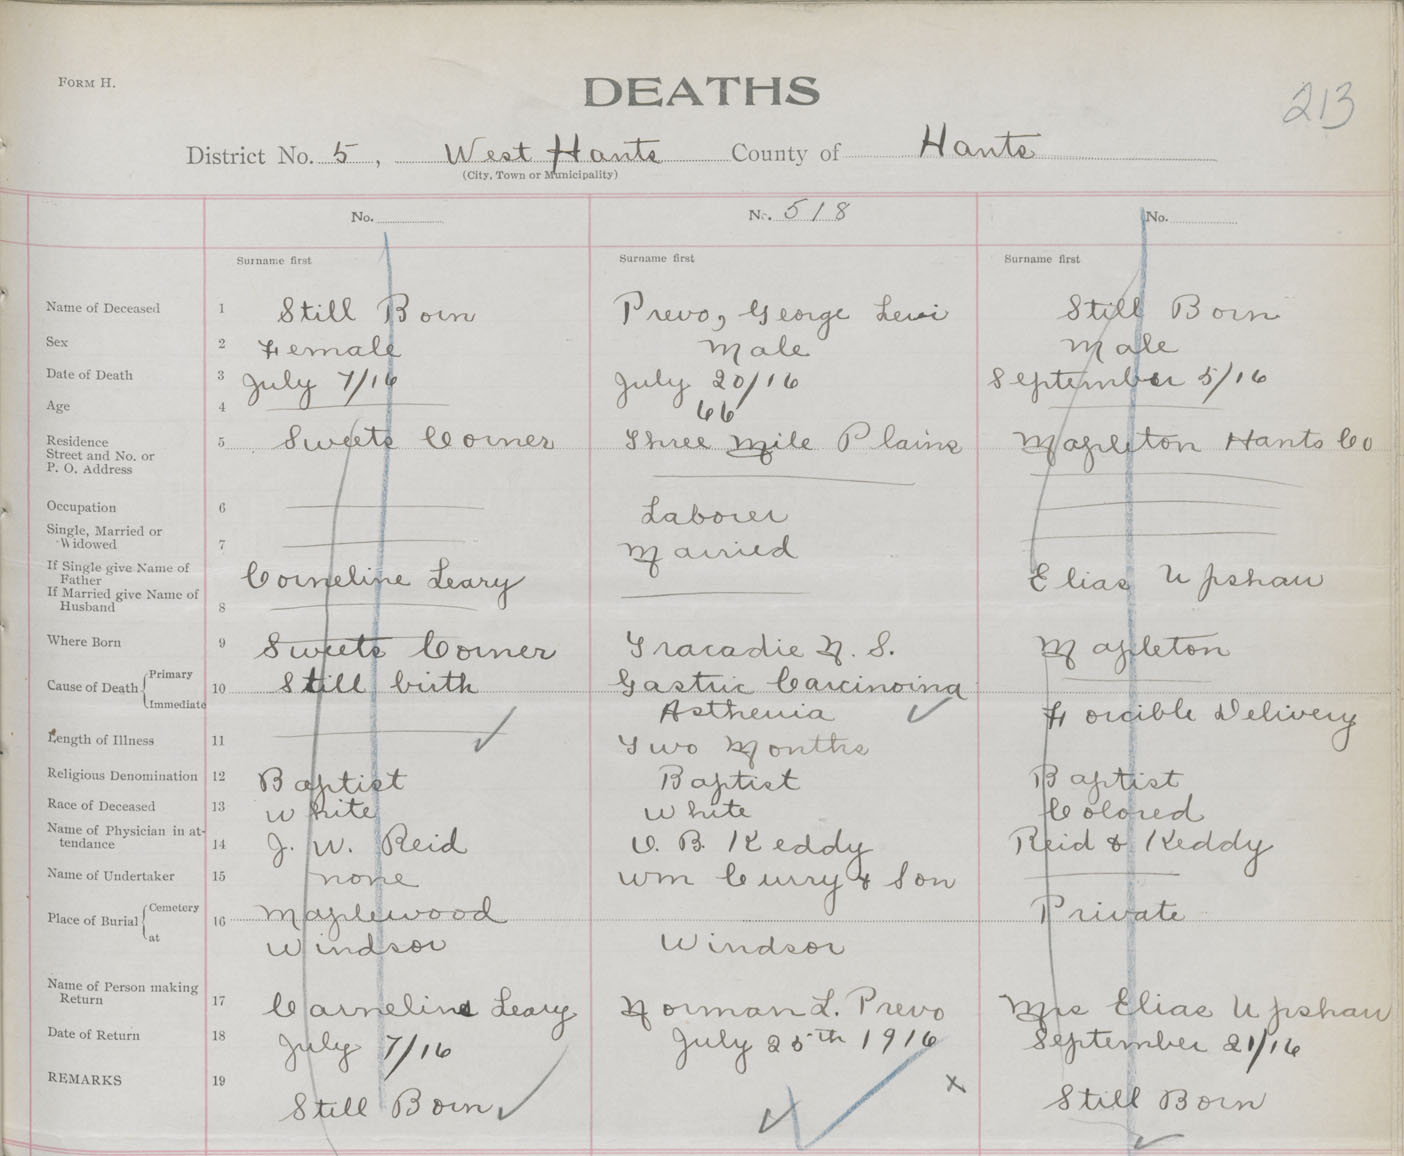 FORM H.
DEATHS
213
District No. 5, West Hants County of Hants
(City, Town or Municipality)
No. No. 518 No.
Surname first Surname first Surname first
Name of Deceased 1 Still Born Prevo, George Levi Still Born
Sex 2 Female Male Male
Date of Death 3 July 7/16 July 20/16 September 5/16
Age 4 66
Residence 5 Sweets Corner Three Mile Plains Mapleton Hants Co
Street and No. or
P. O. Address
Occupation 6 Laborer
Single, Married or
Widowed 7 Married
If Single give Name of
Father Corneline Leary Elias Upshaw
If Married give Name of
Husband 8
Where Born 9 Sweets Corner Tracadie N. S. Mapleton
Cause of Death Primary 10 Still birth Gastric Carcinoina
Immediate Asthenia Forcible Delivery
Length of Illness 11 Two Months
Religious Denomination 12 Baptist Baptist Baptist
Race of Deceased 13 White White Colored
Name of Physician in at-
tendance 14 J. W. Reid O. B. Keddy Reid & Keddy
Name of Undertaker 15 none Wm Curry & Son
Place of Burial Cemetery 16 Maplewood Private
at Windsor Windsor
Name of Person making
Return 17 Carneline Leary Norman L. Prevo Mrs Elias Upshaw
Date of Return 18 July 7/16 July 25th 1916 September 21/16
REMARKS 19 Still Born x Still Born